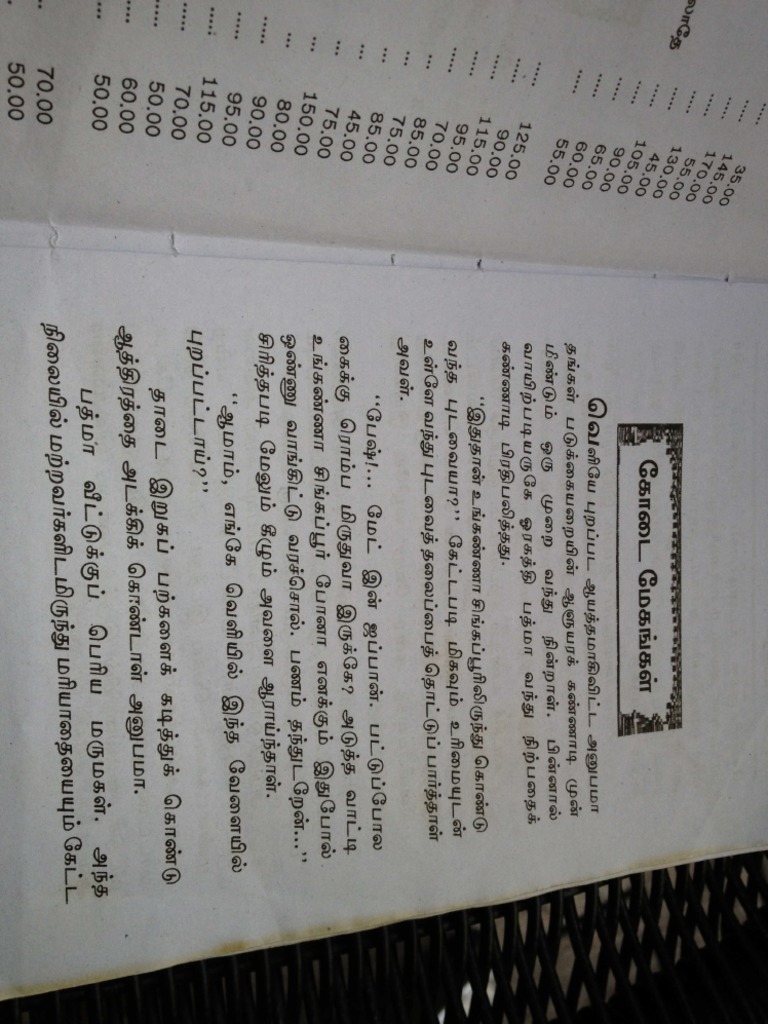 35.00
145.00
170.00
55.00
130.00
45.00
105.00
90.00
65.00
60.00
55.00
125.00
90.00
115.00
95.00
70.00
85.00
75.00
85.00
45.00
75.00
150.00
80.00
90.00
95.00
115.00
70.00
50.00
60.00
50.00
70.00
50.00
கோடை மேகங்கள்
வெளியே புறப்பட ஆயத்தமாகிவிட்ட அனுபமா
தங்கள் படுக்கையறையின் ஆளுயரக் கண்ணாடி முன்
மீண்டும் ஒரு முறை வந்து நின்றாள். பின்னால்
வாயிற்படியருகே ஓரகத்தி பத்மா வந்து நிற்பதைக்
கண்ணாடி பிரதிபலித்தது.
“இதுதான் உங்கண்ணா சிங்கப்பூரிலிருந்து கொண்டு
வந்த புடவையா?” கேட்டபடி மிகவும் உரிமையுடன்
உள்ளே வந்து புடவைத் தலைப்பைத் தொட்டுப் பார்த்தாள்
அவள்.
“பேஷ்!... மேட் இன் ஜப்பான். பட்டுப்போல
கைக்கு ரொம்ப மிருதுவா இருக்கே? அடுத்த வாட்டி
உங்கண்ணா சிங்கப்பூர் போனா எனக்கும் இதுபோல்
ஒண்ணு வாங்கிட்டு வரச்சொல். பணம் தந்துடறேன்...”
சிரித்தபடி மேலும் கீழும் அவளை ஆராய்ந்தாள்.
“ஆமாம், எங்கே வெளியில் இந்த வேளையில்
புறப்பட்டாய்?”
தாடை இறுகப் பற்களைக் கடித்துக் கொண்டு
ஆத்திரத்தை அடக்கிக் கொண்டாள் அனுபமா.
பத்மா வீட்டுக்குப் பெரிய மருமகள். அந்த
நிலையில் மற்றவர்களிடமிருந்து மரியாதையையும் கேட்ட